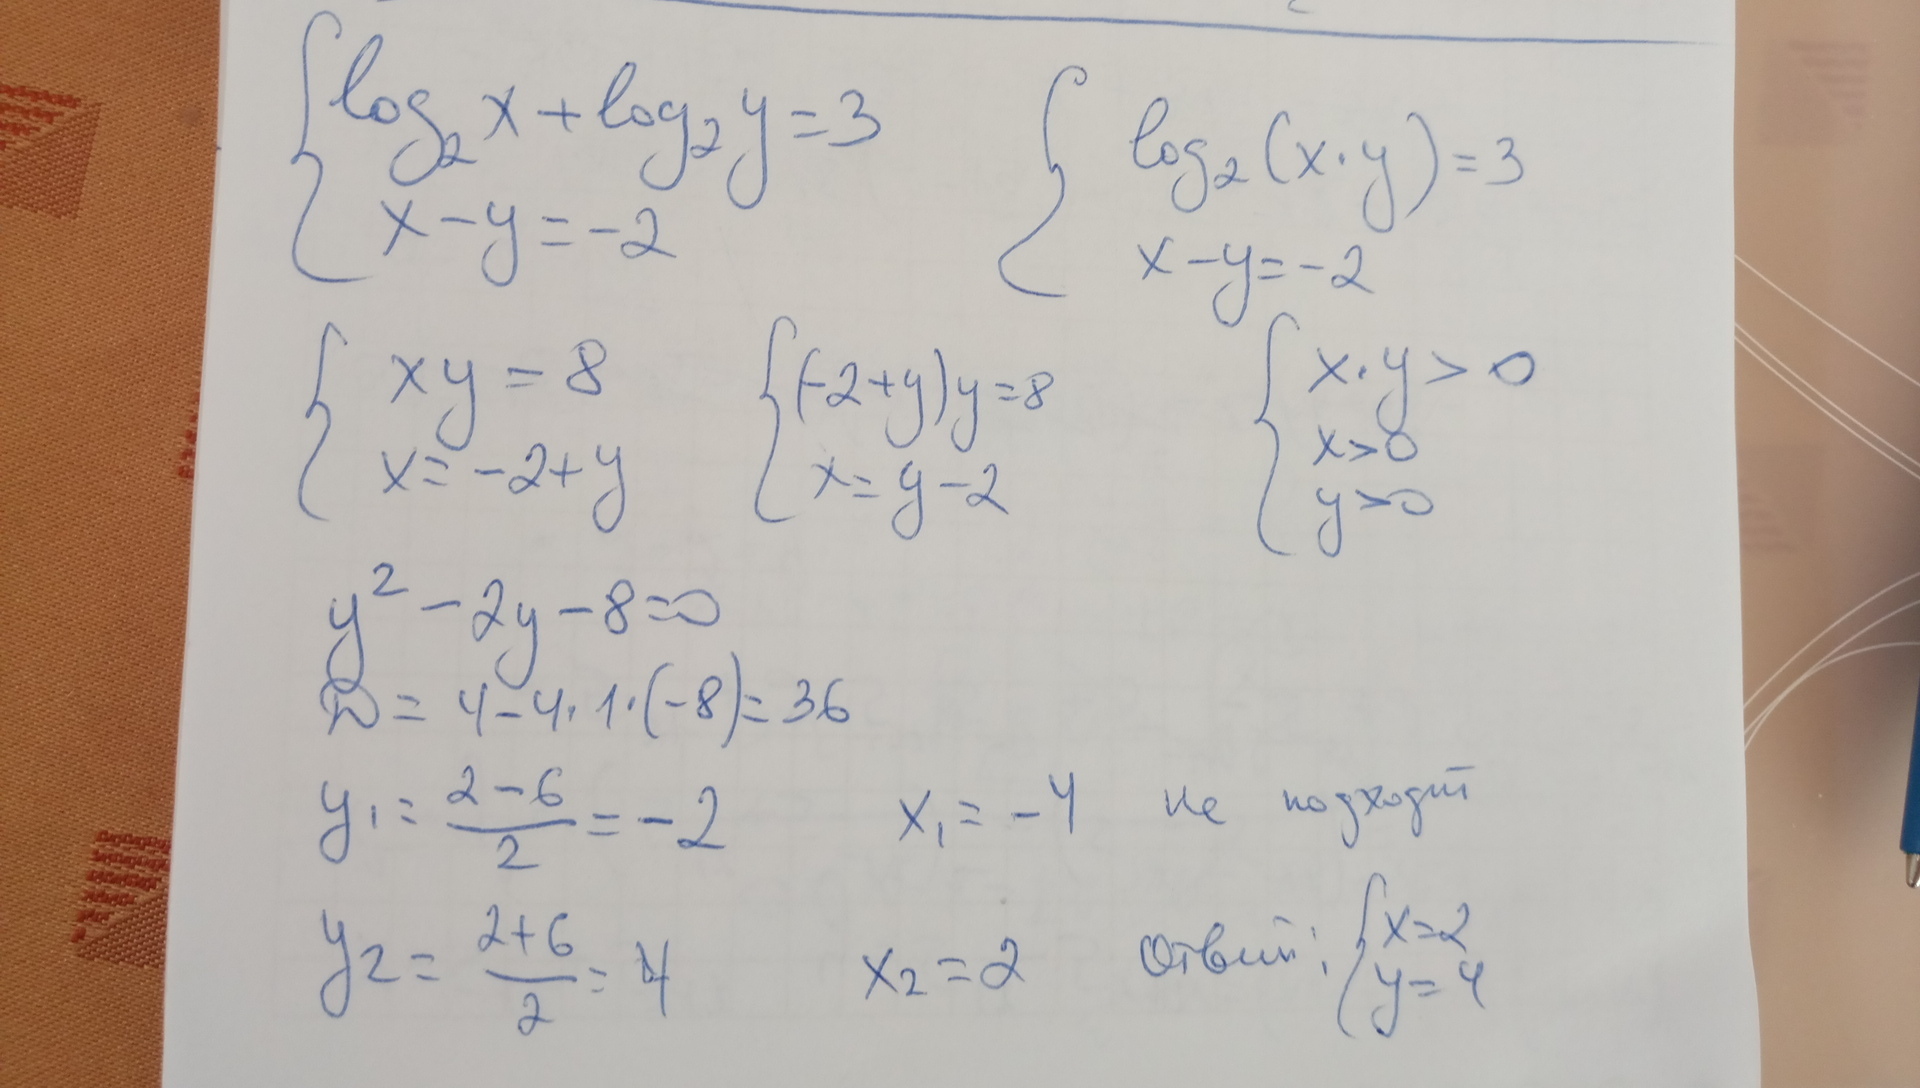 { log₂ x + log₂ y = 3
x - y = -2
{ log₂ (x · y) = 3
x - y = -2
{ xy = 8
x = -2 + y
{ (-2 + y) y = 8
x = y - 2
{ x · y > 0
x > 0
y > 0
y² - 2y - 8 = 0
D = 4 - 4 · 1 · (-8) = 36
y₁ = (2 - 6)/2 = -2 x₁ = -4 не подходит
y₂ = (2 + 6)/2 = 4 x₂ = 2 Ответ: { x = 2
y = 4